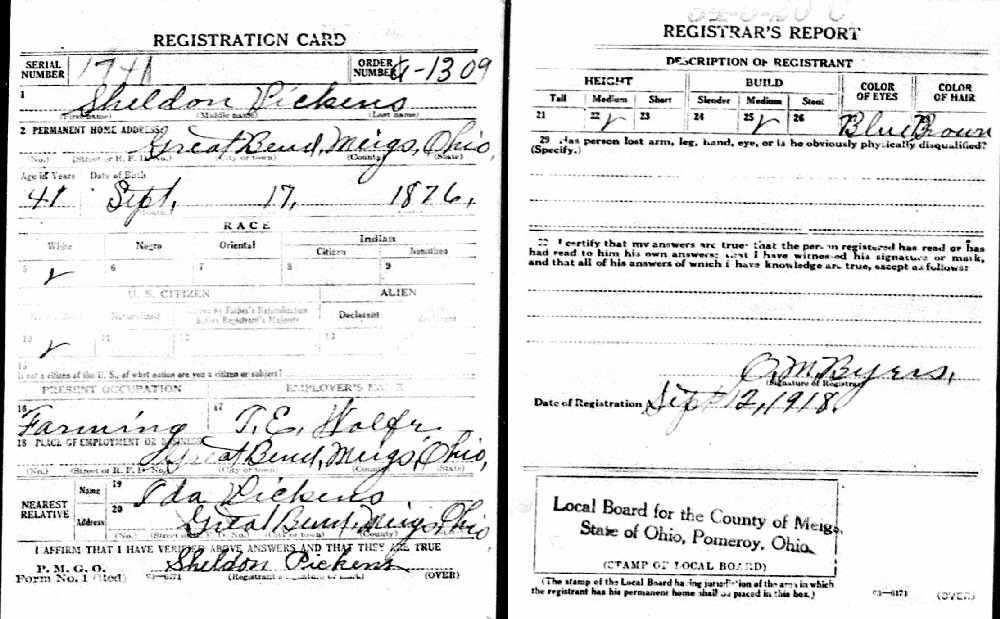 REGISTRATION CARD
SERIAL NUMBER 1741 ORDER NUMBER A-1309
1 Sheldon Pickens
(First name) (Middle name) (Last name)
2 PERMANENT HOME ADDRESS:
Great Bend, Meigs, Ohio,
(No.) (Street or R. F. D. No.) (City or town) (County) (State)
Age in Years Date of Birth
41 Sept. 17, 1876,
RACE
White Negro Oriental Indian
Citizen Noncitizen
5 ✓ 6 7 8 9
U. S. CITIZEN ALIEN
Native Born Naturalized Citizen by Father's Naturalization Before Registrant's Majority Declarant
10 ✓ 11 12 13
15
If not a citizen of the U. S., of what nation are you a citizen or subject?
PRESENT OCCUPATION EMPLOYER'S NAME
16 Farming 17 T. E. Wolfe
18 PLACE OF EMPLOYMENT OR BUSINESS
Great Bend, Meigs, Ohio,
(No.) (Street or R. F. D. No.) (City or town) (County) (State)
NEAREST RELATIVE Name 19 Ida Pickens
Address 20 Great Bend, Meigs, Ohio
(No.) (Street or R. F. D. No.) (City or town) (County)
I AFFIRM THAT I HAVE VERIFIED ABOVE ANSWERS AND THAT THEY ARE TRUE
P. M. G. O.
Form No. 1 (Red) 03—6171 Sheldon Pickens
(Registrant's signature or mark) (OVER)
REGISTRAR'S REPORT
DESCRIPTION OF REGISTRANT
HEIGHT BUILD COLOR OF EYES COLOR OF HAIR
Tall Medium Short Slender Medium Stout
21 22 ✓ 23 24 25 ✓ 26 Blue Brown
29 Has person lost arm, leg, hand, eye, or is he obviously physically disqualified?
(Specify.)
I certify that my answers are true; that the person registered has read or has
had read to him his own answers; that I have witnessed his signature or mark,
and that all of his answers of which I have knowledge are true, except as follows:
O. M. Byers,
(Signature of Registrar)
Date of Registration Sept 12, 1918.
Local Board for the County of Meigs,
State of Ohio, Pomeroy, Ohio.
(STAMP OF LOCAL BOARD)
(The stamp of the Local Board having jurisdiction of the area in which
the registrant has his permanent home shall be placed in this box.)
03—6171 (OVER)